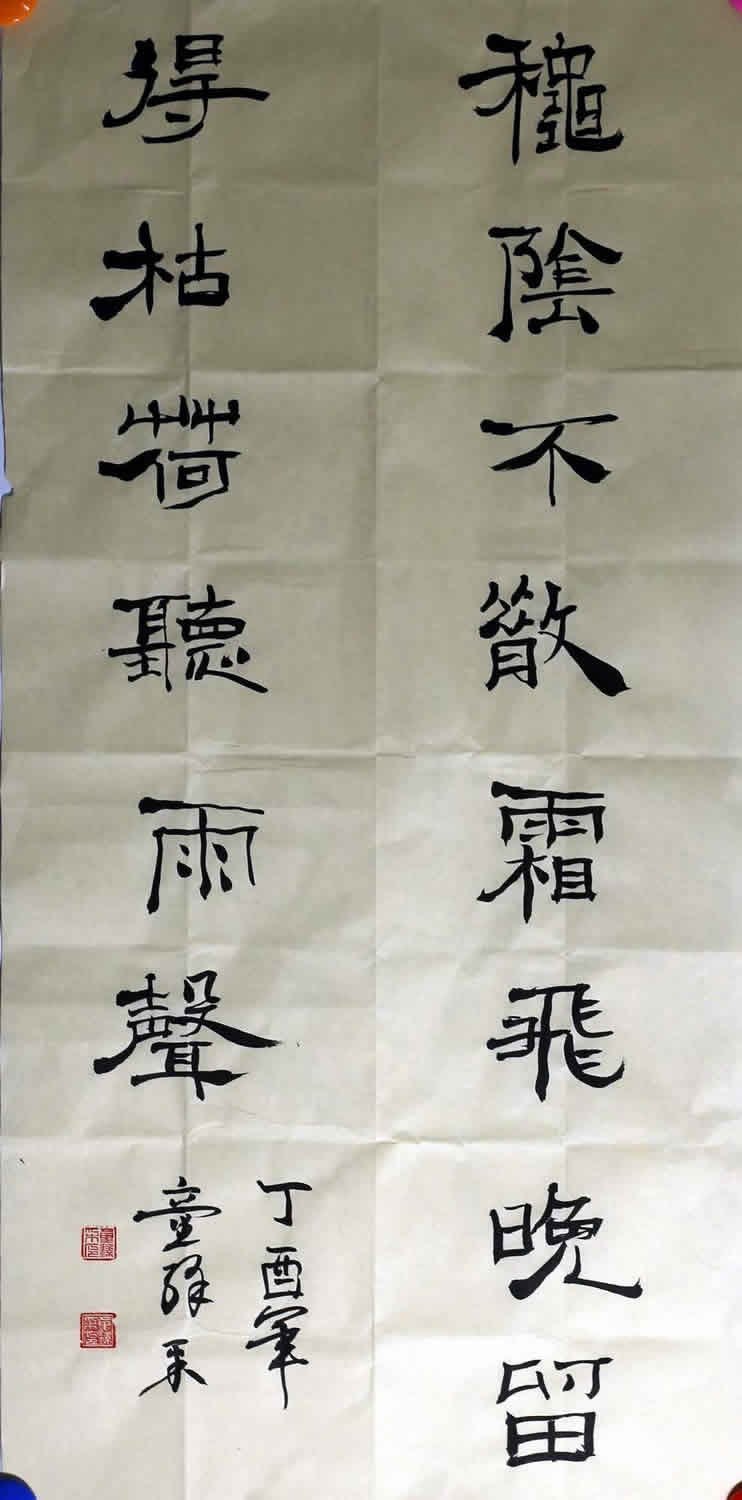 穐陰不散霜飛晚留
得枯荷聽雨聲
丁酉年
童